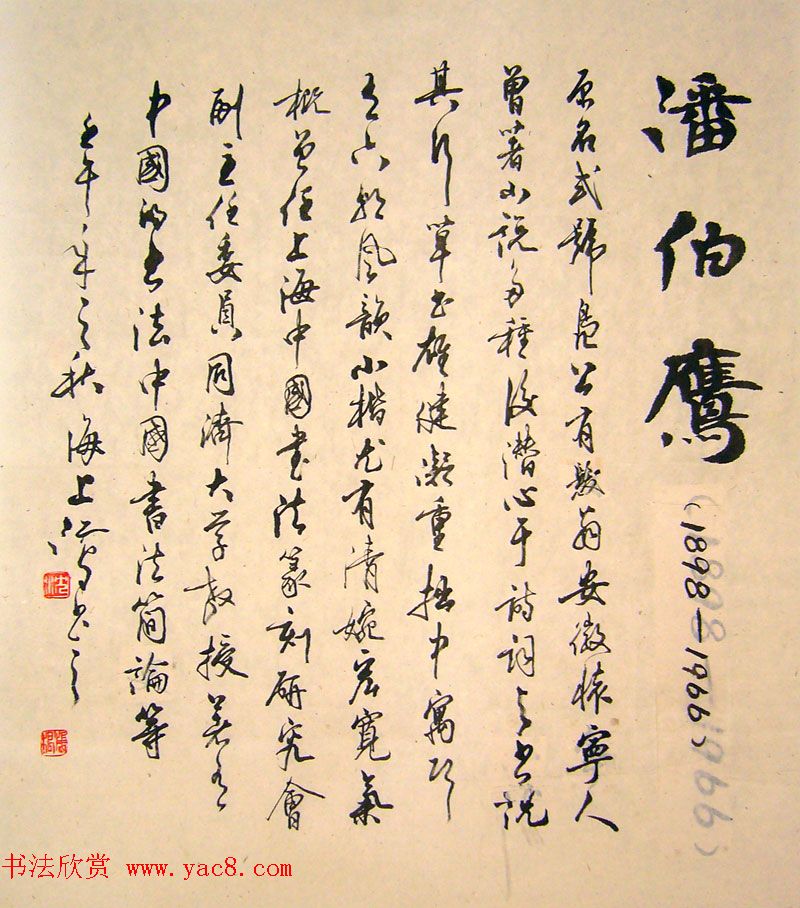 潘伯鷹
(1898—1966)
原名式號鳧公有髮翁安徽懷寧人
曾著小说多種後潜心于詩詞与书说
其行草书雄健凝重拙中寓巧
有六朝风韻小楷尤有清婉宏寬氣
概曾任上海中國書法篆刻研究會
副主任委員同濟大学教授著有
中國的书法中國書法简論等
壬午年之秋海上
书法欣赏 www.yac8.com